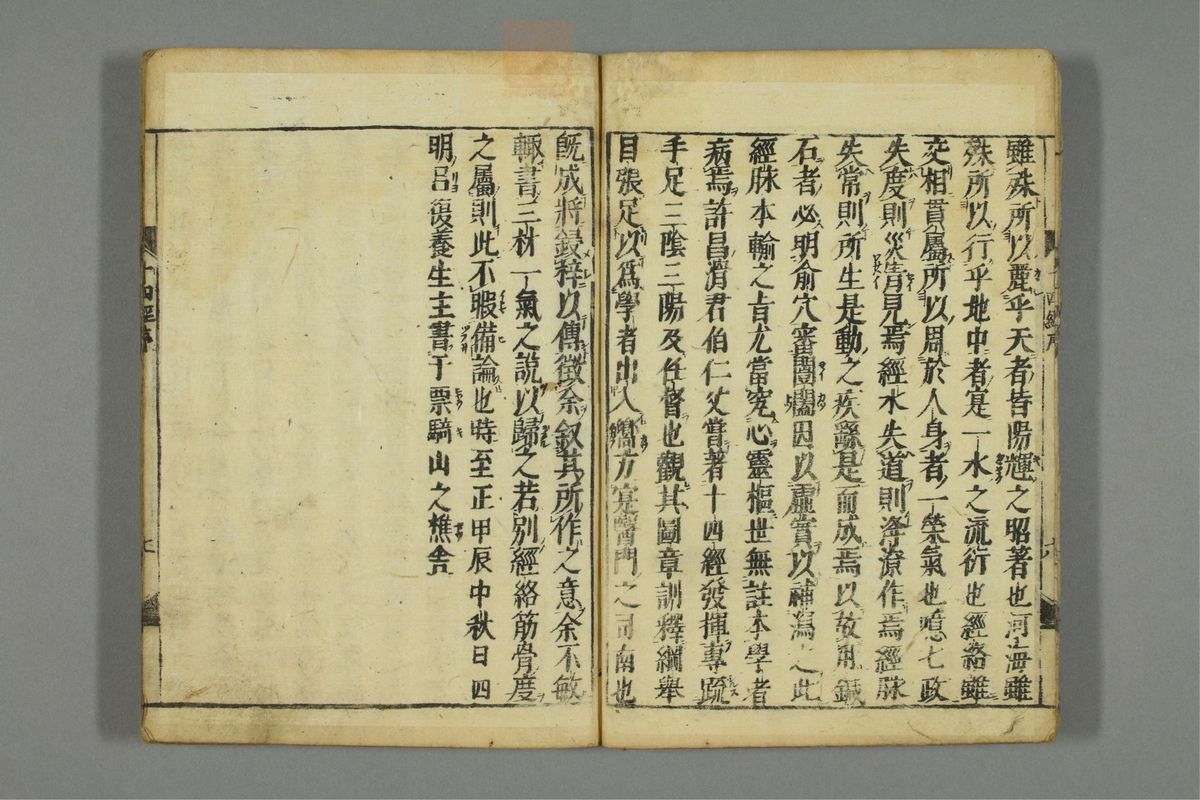 雖殊所以麗乎天者皆陽輝之昭著也河海雖
殊所以行乎地中者寔一水之流衍也經絡雖
交相貫屬所以周於人身者一榮氣也噫七政
失度則災眚見焉經水失道則洚潦作焉經脉
失常則所生是動之疾繇是而成焉以故用鍼
石者必明俞穴審闓闔因以虛實以補瀉之此
經脉本輸之旨尤當究心靈樞世無註本學者
病焉許昌滑君伯仁父甞著十四經發揮專䟽
手足三陰三陽及任督也觀其圖章訓釋綱舉
目張足以爲學者出入嚮方寔醫門之司南也
既成將鋟梓以傳徵余叙其所作之意余不敏
輙書三材一氣之說以歸之若別經絡筋骨度
之屬則此不暇備論也時至正甲辰中秋日四
明呂復養生主書于票騎山之樵舍
十四經序
七